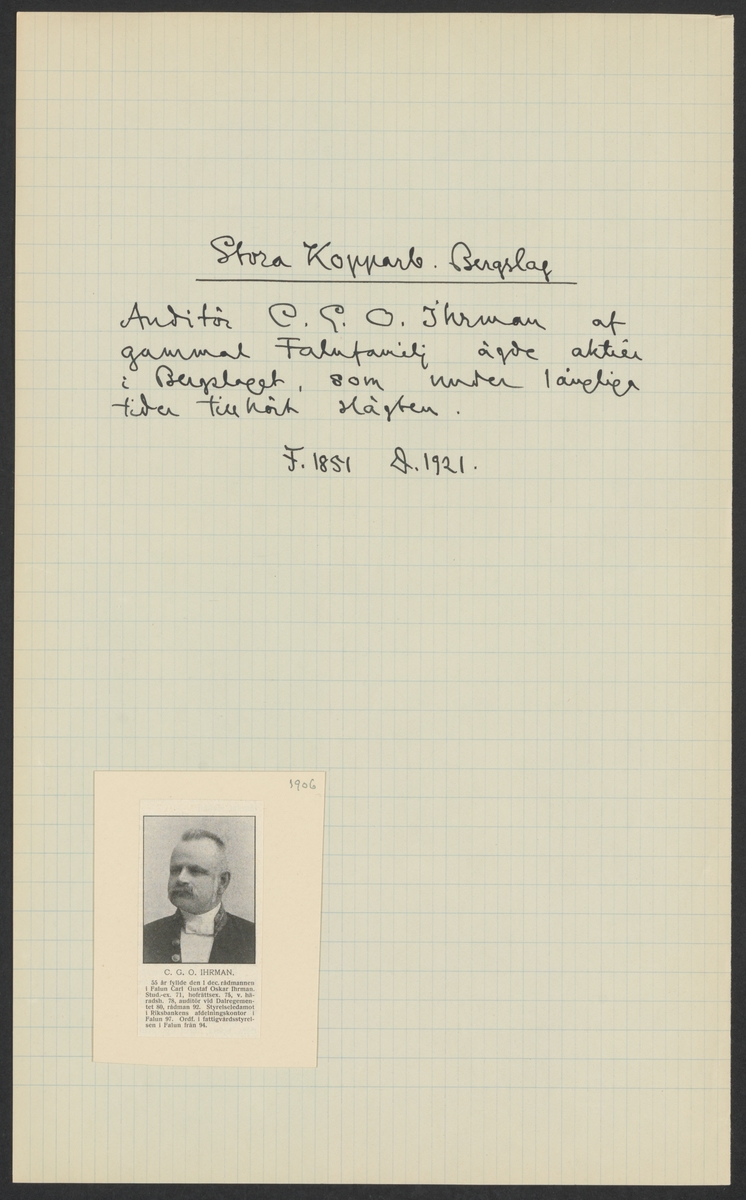 Stora Kopparb. Bergslag
Auditör C. G. O. Ihrman af
gammal Falufamilj ägde aktier
i Bergslaget, som under långliga
tider tillhört slägten.
F. 1851 D. 1921.
1906
C. G. O. IHRMAN.
55 år fyllde den 1 dec. rådmannen
i Falun Carl Gustaf Oskar Ihrman.
Stud.-ex. 71, hofrättsex. 75, v. hä-
radsh. 78, auditör vid Dalregemen-
tet 80, rådman 92. Styrelseledamot
i Riksbankens afdelningskontor i
Falun 97. Ordf. i fattigvårdsstyrel-
sen i Falun från 94.